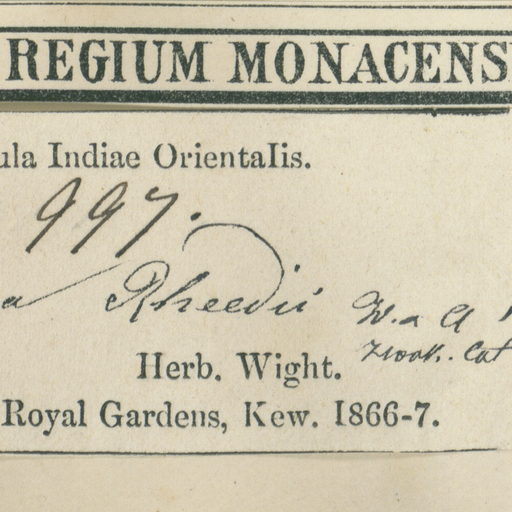 REGIUM MONACENS
ula Indiae Orientalis.
997.
a Rheedii W. & A
Herb. Wight.
Royal Gardens, Kew. 1866-7.